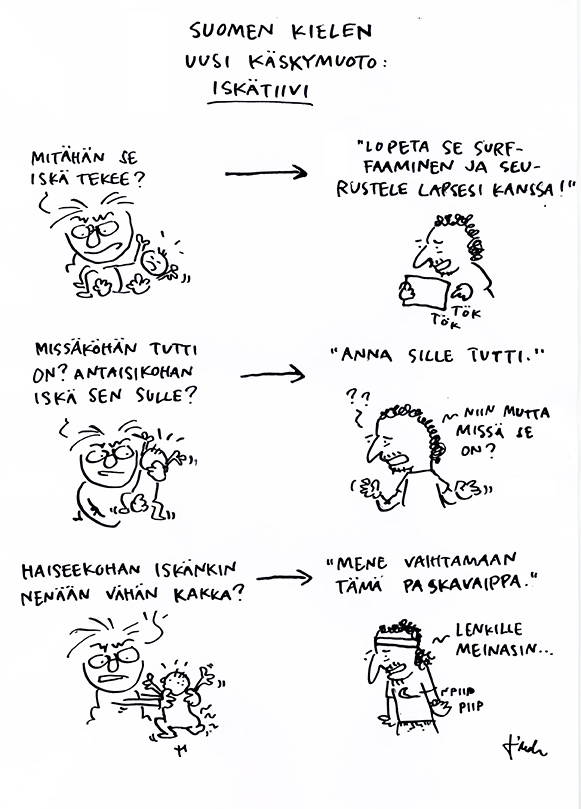 SUOMEN KIELEN
UUSI KÄSKYMUOTO:
ISKÄTIIVI
MITÄHÄN SE
ISKÄ TEKEE?
"LOPETA SE SURF-
FAAMINEN JA SEU-
RUSTELE LAPSESI KANSSA!"
TÖK
TÖK
MISSÄKÖHÄN TUTTI
ON? ANTAISIKOHAN
ISKÄ SEN SULLE?
"ANNA SILLE TUTTI."
??
NIIN MUTTA
MISSÄ SE
ON?
HAISEEKOHAN ISKÄNKIN
NENÄÄN VÄHÄN KAKKA?
"MENE VAIHTAMAAN
TÄMÄ PASKAVAIPPA."
LENKILLE
MEINASIN...
PIIP
PIIP